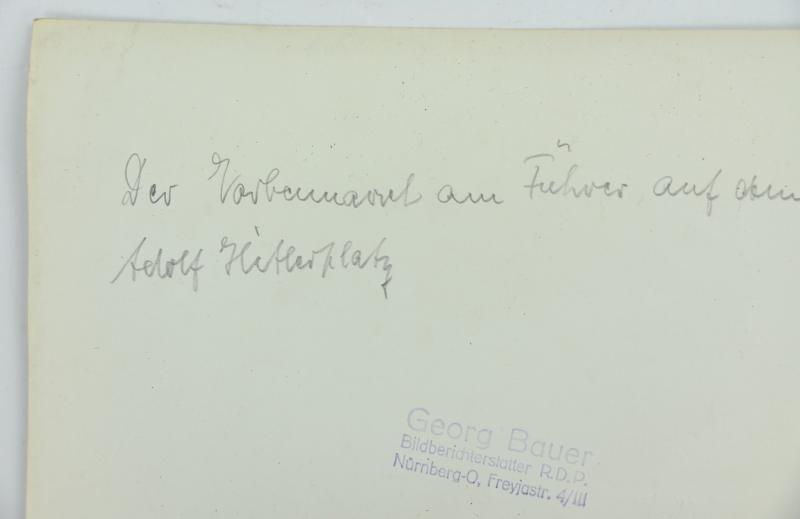 Der Vorbeimarsch am Führer auf dem
Adolf Hitlerplatz
Georg Bauer
Bildberichterstatter R.D.P.
Nürnberg-O, Freyjastr. 4/III